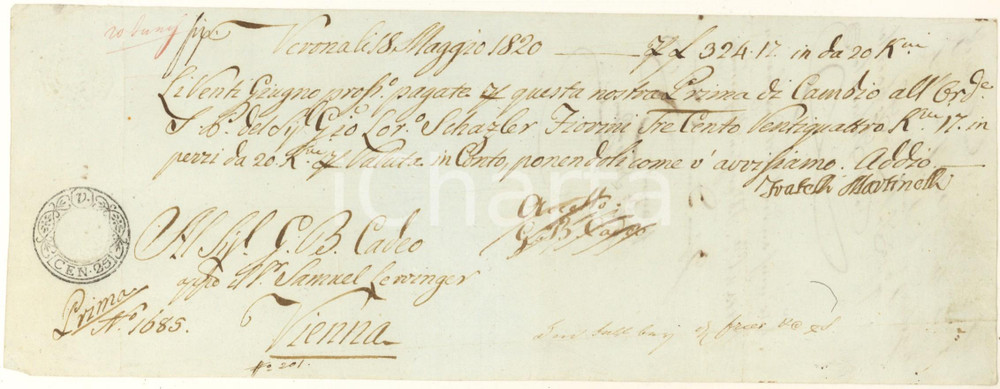 20 Juny Sig.r Verona li 18 Maggio 1820 — £ 324.17. in da 20 K.ni
Li Venti Giugno pross.o pagate p questa nostra Prima di Cambio all'Ord.e
S. P. del Sig.r Gio Lor.o Schazler Fiorini Tre Cento Ventiquattro K.ni 17. in
pezzi da 20 K.ni p Valuta in Conto, ponendoli come v'avvisiamo. Addio
Fratelli Martinelli
Accetto
G B Cadeo
V.
CEN. 25
Al Sig.r G. B. Cadeo
app.o M.r Samuel Lewinger
Prima
N.o 1685.
Vienna
N.o 201.
iCharta